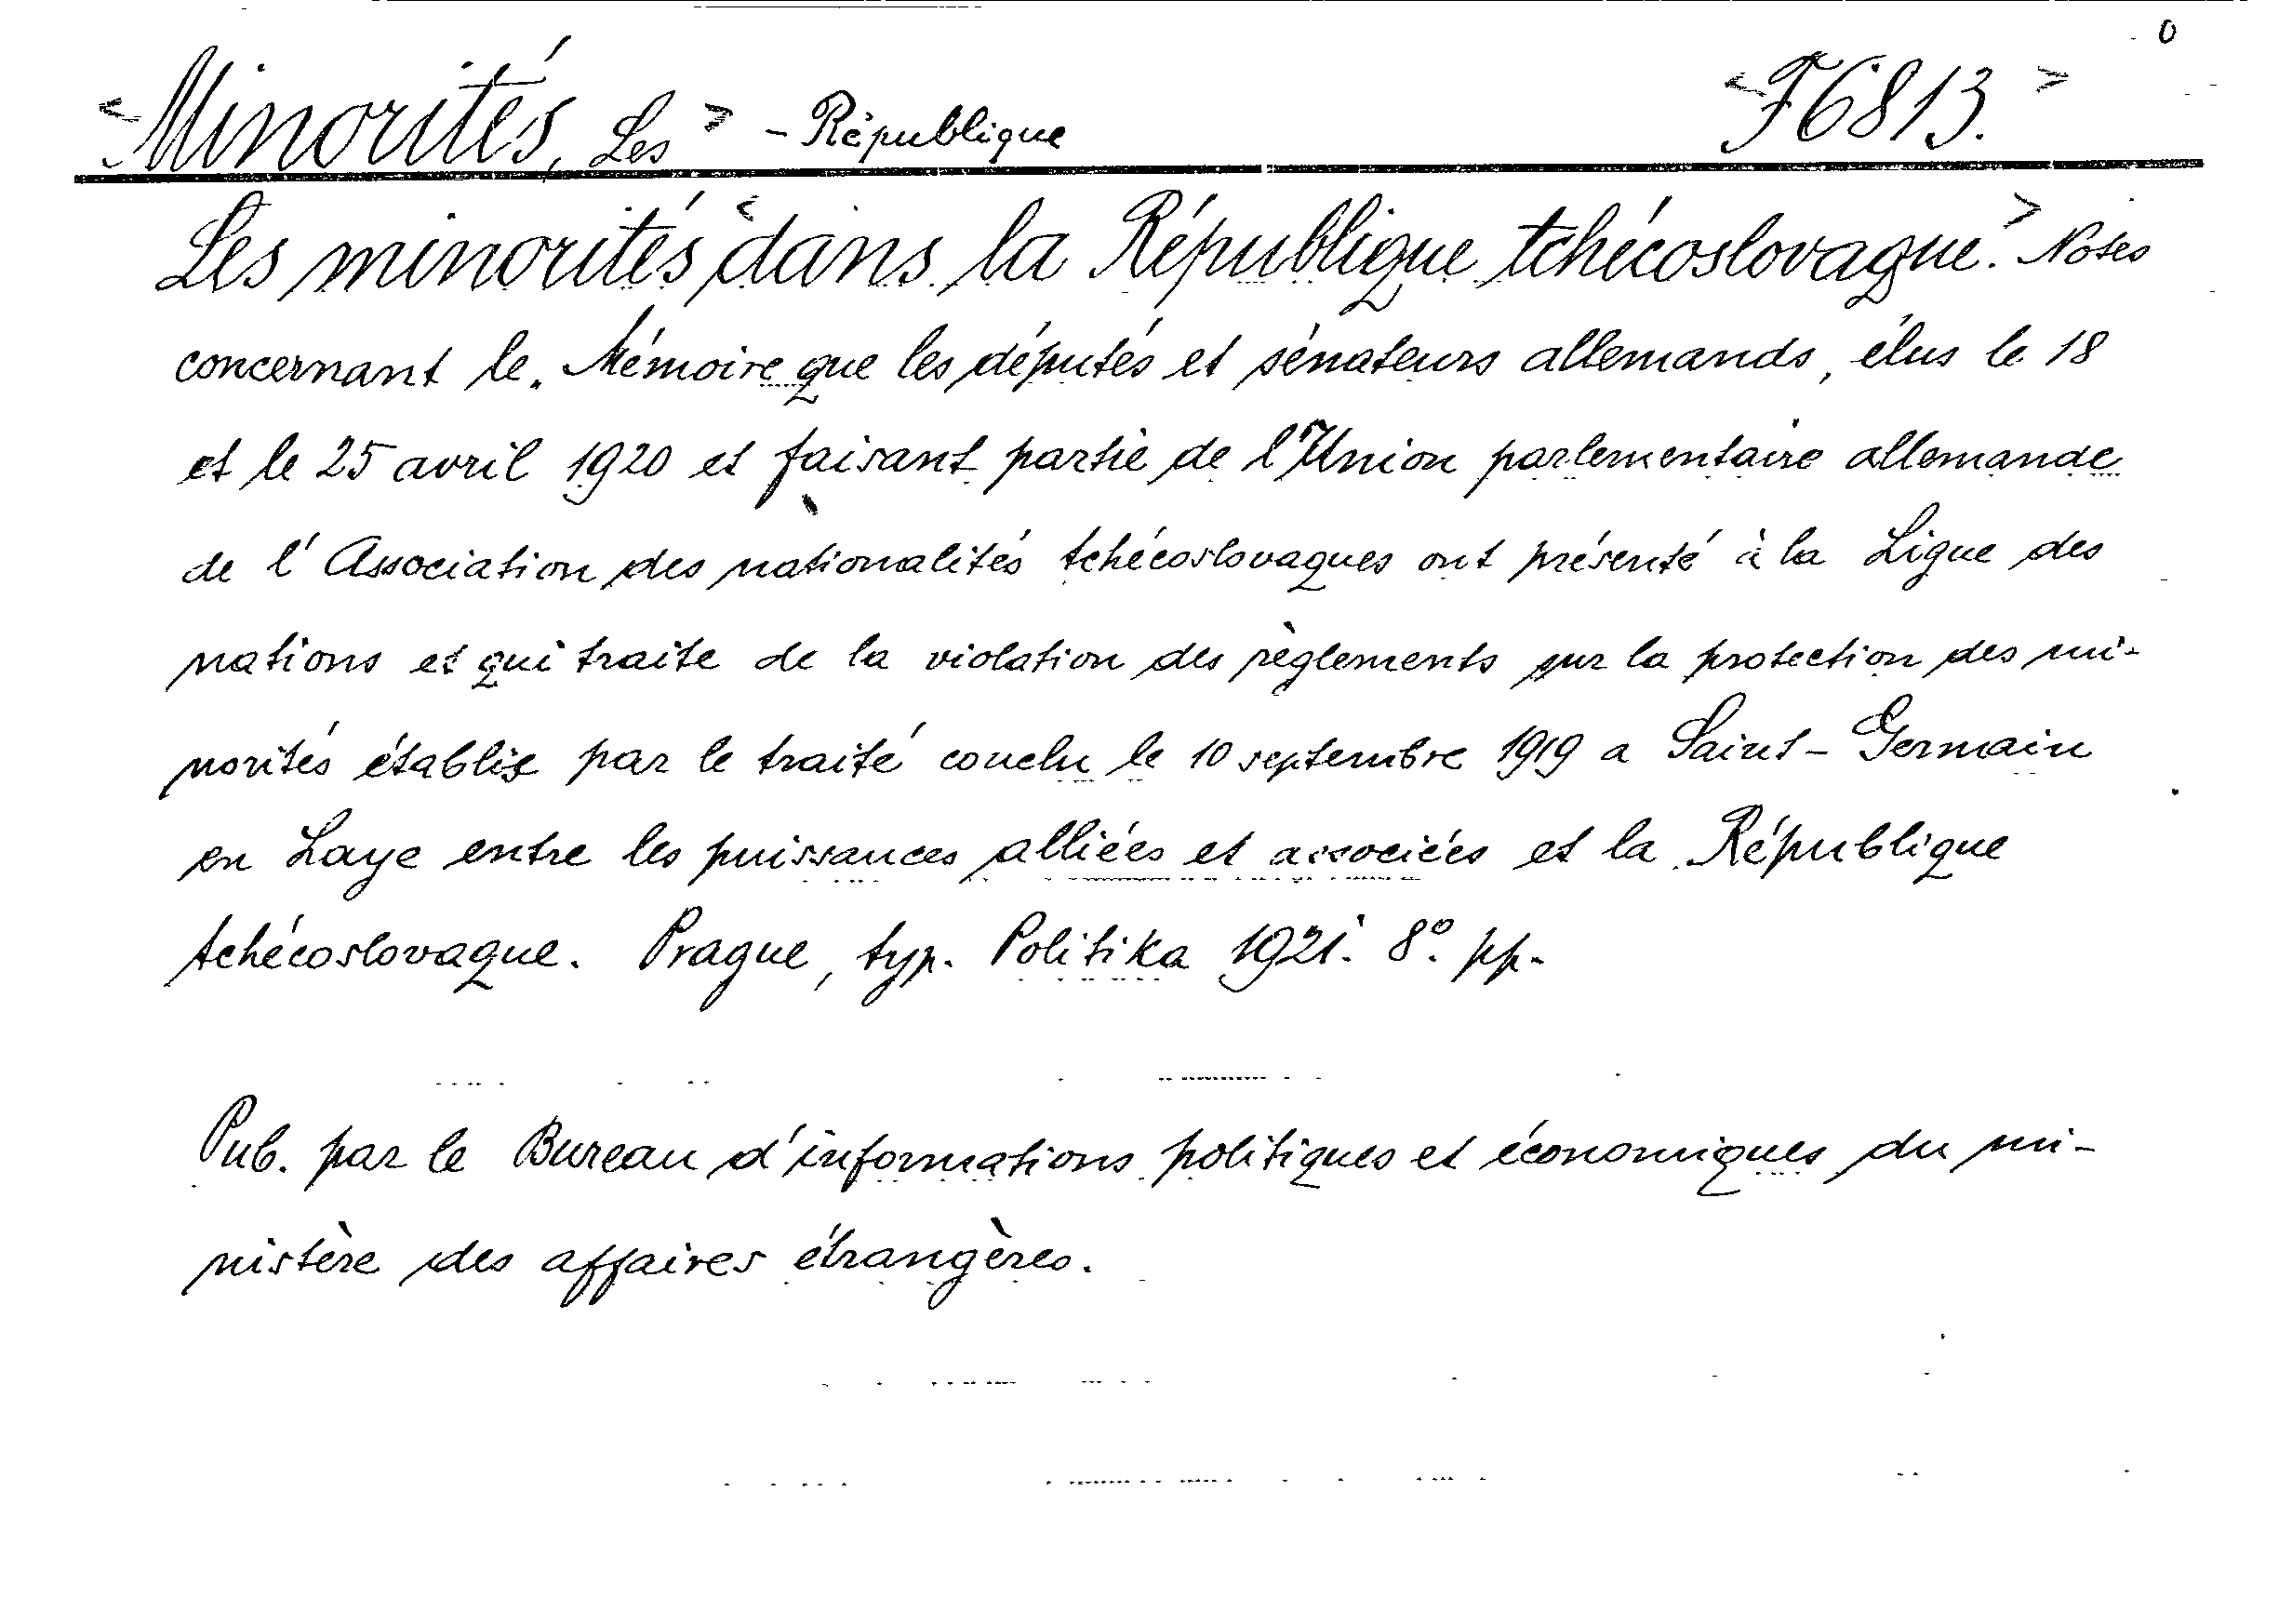 0
<Minorités, Les> - République <F6813.>
Les minorités <dans la République tchécoslovaque.> Notes
concernant le Mémoire que les députés et sénateurs allemands, élus le 18
et le 25 avril 1920 et faisant partie de l'Union parlementaire allemande
de l'Association des nationalités tchécoslovaques ont présenté à la Ligue des
nations et qui traite de la violation des règlements sur la protection des mi-
norités établis par le traité conclu le 10 septembre 1919 a Saint-Germain
en Laye entre les puissances alliées et associées et la République
tchécoslovaque. Prague, typ. Politika 1921. 8°. pp.
Pub. par le Bureau d'informations politiques et économiques du mi-
nistère des affaires étrangères.